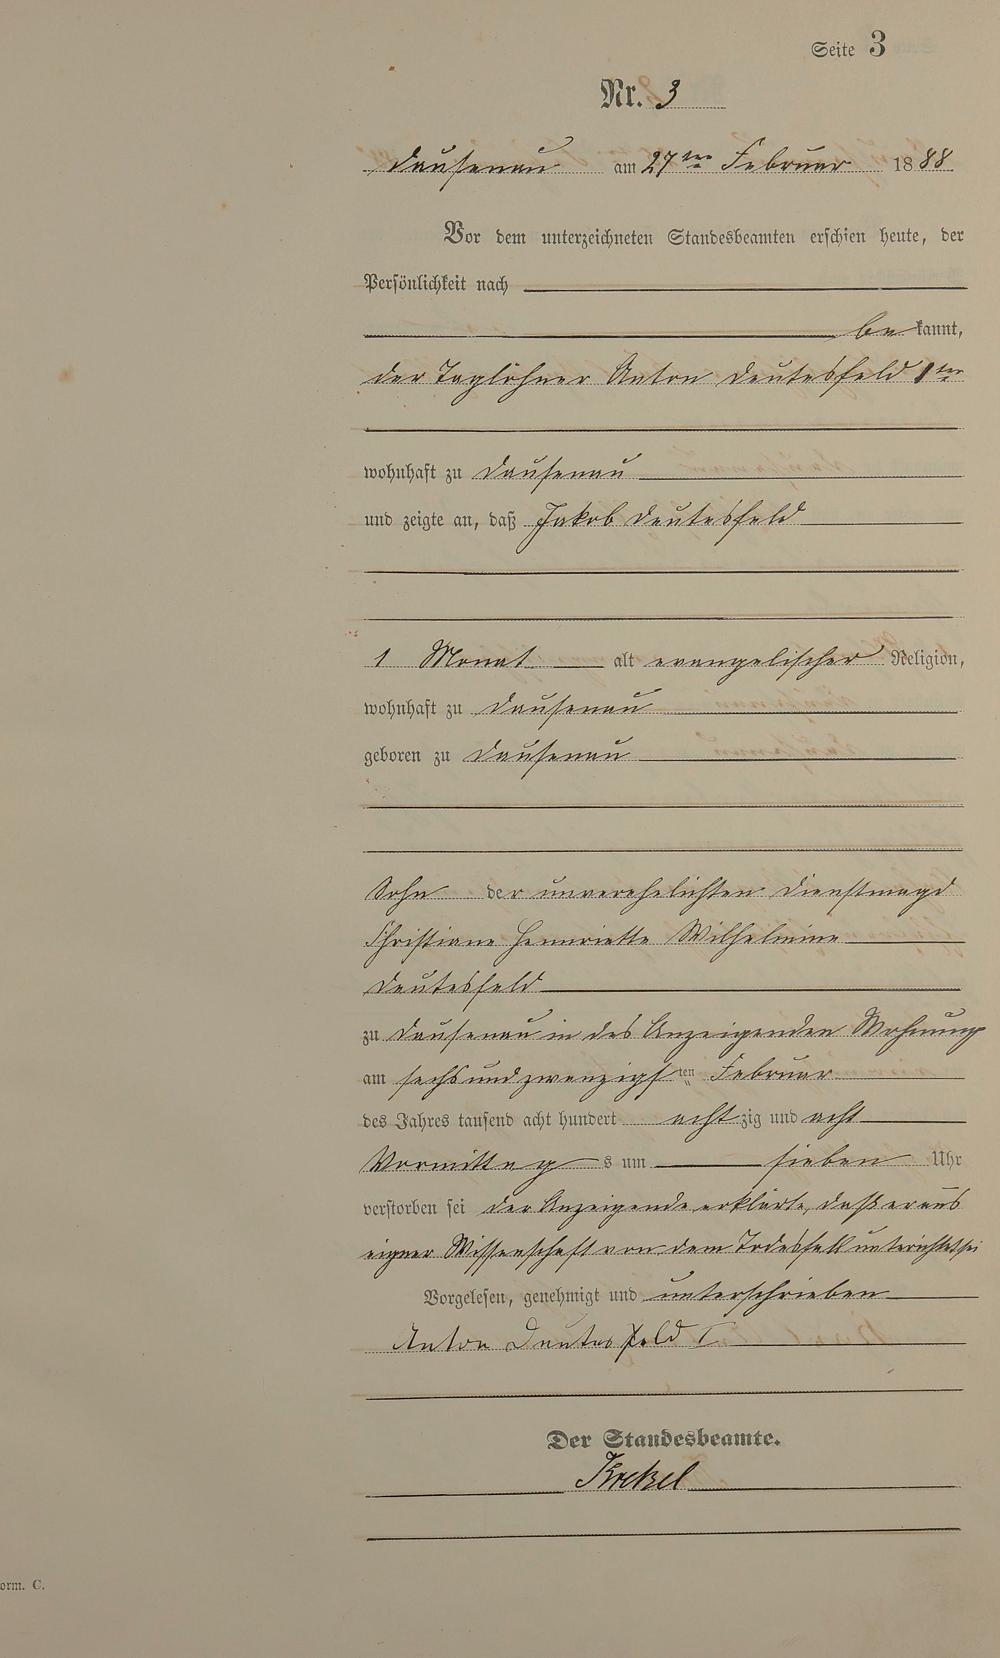 Seite 3
Nr. 3
Dausenau am 27ten Februar 1888
Vor dem unterzeichneten Standesbeamten erschien heute, der
Persönlichkeit nach
be kannt,
der Taglöhner Anton Deutesfeld 1ter
wohnhaft zu Dausenau
und zeigte an, daß Jakob Deutesfeld
1 Monat alt evangelischer Religion,
wohnhaft zu Dausenau
geboren zu Dausenau
Sohn der unverehelichten Dienstmagd
Christiane Henriette Wilhelmine
Deutesfeld
zu Dausenau in des Anzeigenden Wohnung
am sechsundzwanzigsten Februar
des Jahres tausend acht hundert achtzig und acht
Vormittags um sieben Uhr
verstorben sei der Anzeigende erklärte, daß er aus
eigner Wissenschaft von dem Todesfall unterichtet sei
Vorgelesen, genehmigt und unterschrieben
Anton Deutesfeld I
Der Standesbeamte.
Krekel
orm. C.